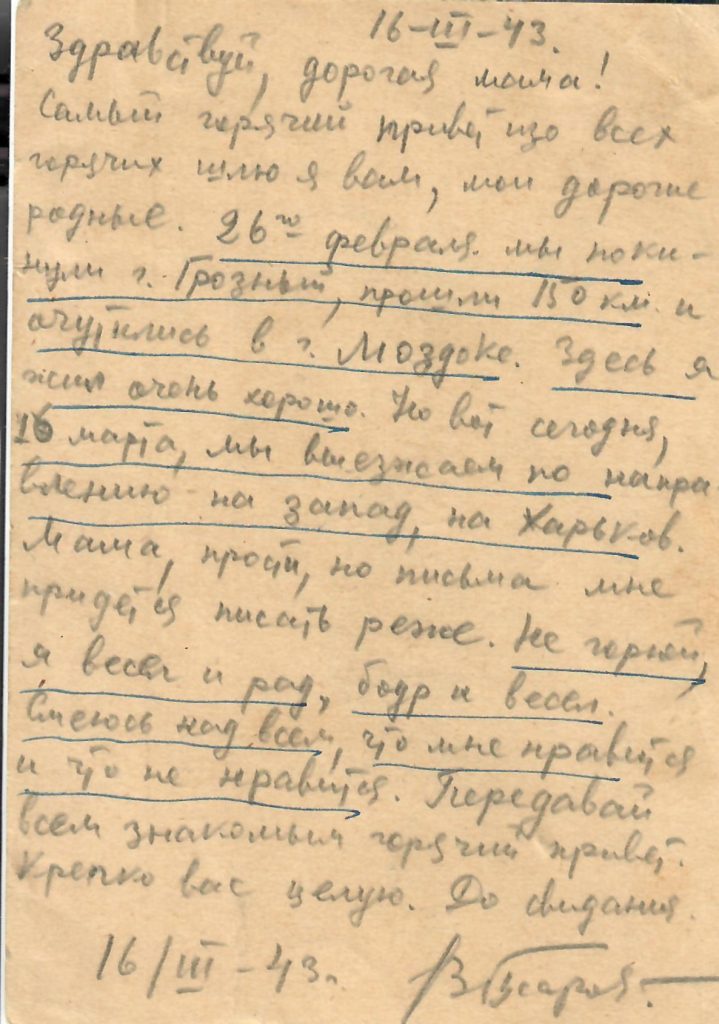 16-III-43.
Здравствуй, дорогая мама!
Самый горячий привет изо всех
горячих шлю я вам, мои дорогие
родные. 26го февраля мы поки-
нули г. Грозный, прошли 150 км. и
очутились в г. Моздоке. Здесь я
жил очень хорошо. Но вот сегодня,
16 марта, мы выезжаем по напра
влению на запад, на Харьков.
Мама, прости, но письма мне
придется писать реже. Не горюй,
я весел и рад, бодр и весел.
Смеюсь над всем, что мне нравится
и что не нравится. Передавай
всем знакомым горячий привет.
Крепко вас целую. До свидания.
16/III-43г.